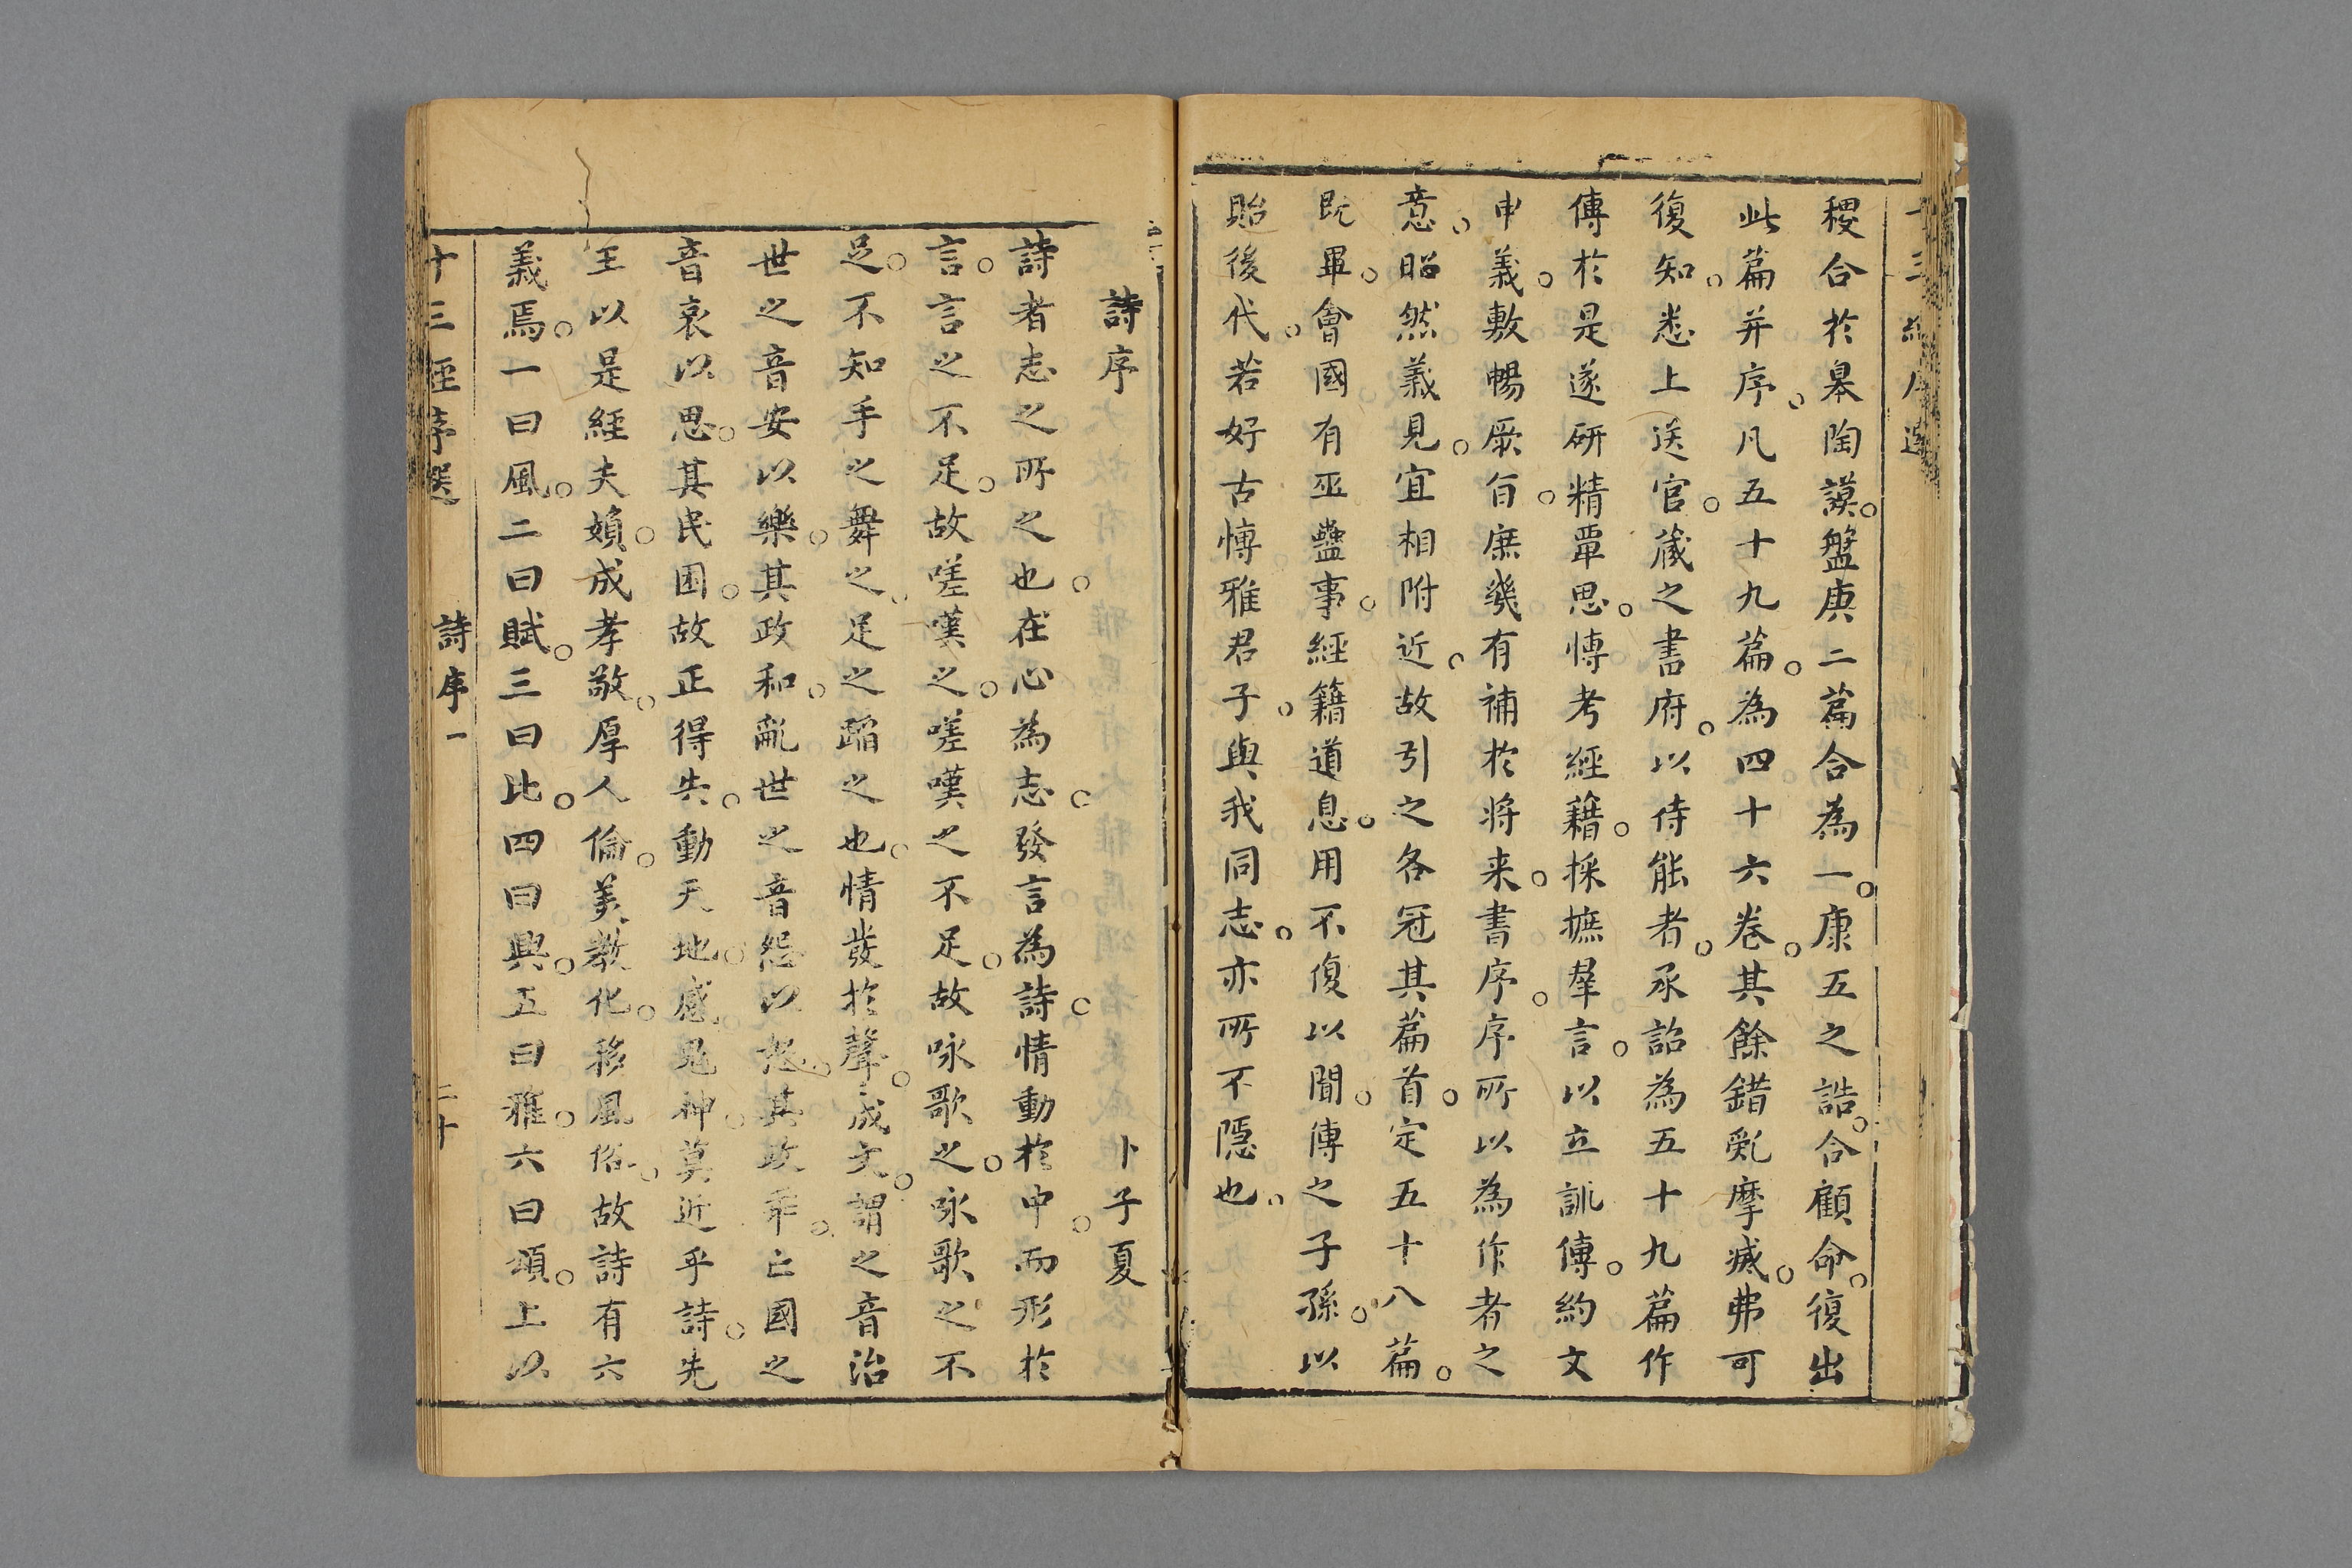 稷合於皋陶謨。盤庚二篇合為一。康王之誥。合顧命。復出
此篇并序。凡五十九篇。為四十六卷。其餘錯亂摩滅。弗可
復知。悉上送官。蔵之書府。以待能者。承詔為五十九篇作
傳於是遂研精覃思。博考經籍。採摭羣言。以立訓傳。約文
申義。敷暢厥旨。庶幾有補於将来。書序。序所以為作者之
意。昭然義見。宜相附近。故引之各冠其篇首。定五十八篇。
既畢。會國有巫蠱事。經籍道息。用不復以聞。傳之子孫。以
貽後代。若好古博雅君子。與我同志。亦所不隱也。
詩序
卜子夏
詩者志之所之也。在心為志。發言為詩。情動於中。而形於
言。言之不足。故嗟嘆之。嗟嘆之不足。故咏歌之。咏歌之不
足。不知手之舞之。足之蹈之也。情發於聲。成文。謂之音治
世之音安以樂。其政和。亂世之音怨以怒。其政乖。亡國之
音哀以思。其民困。故正得失。動天地。感鬼神。莫近乎詩。先
王以是經夫婦。成孝敬。厚人倫。美教化。移風俗。故詩有六
義焉。一曰風。二曰賦。三曰比。四曰興。五曰雅。六曰頌。上以
十三經序選 詩序一 二十